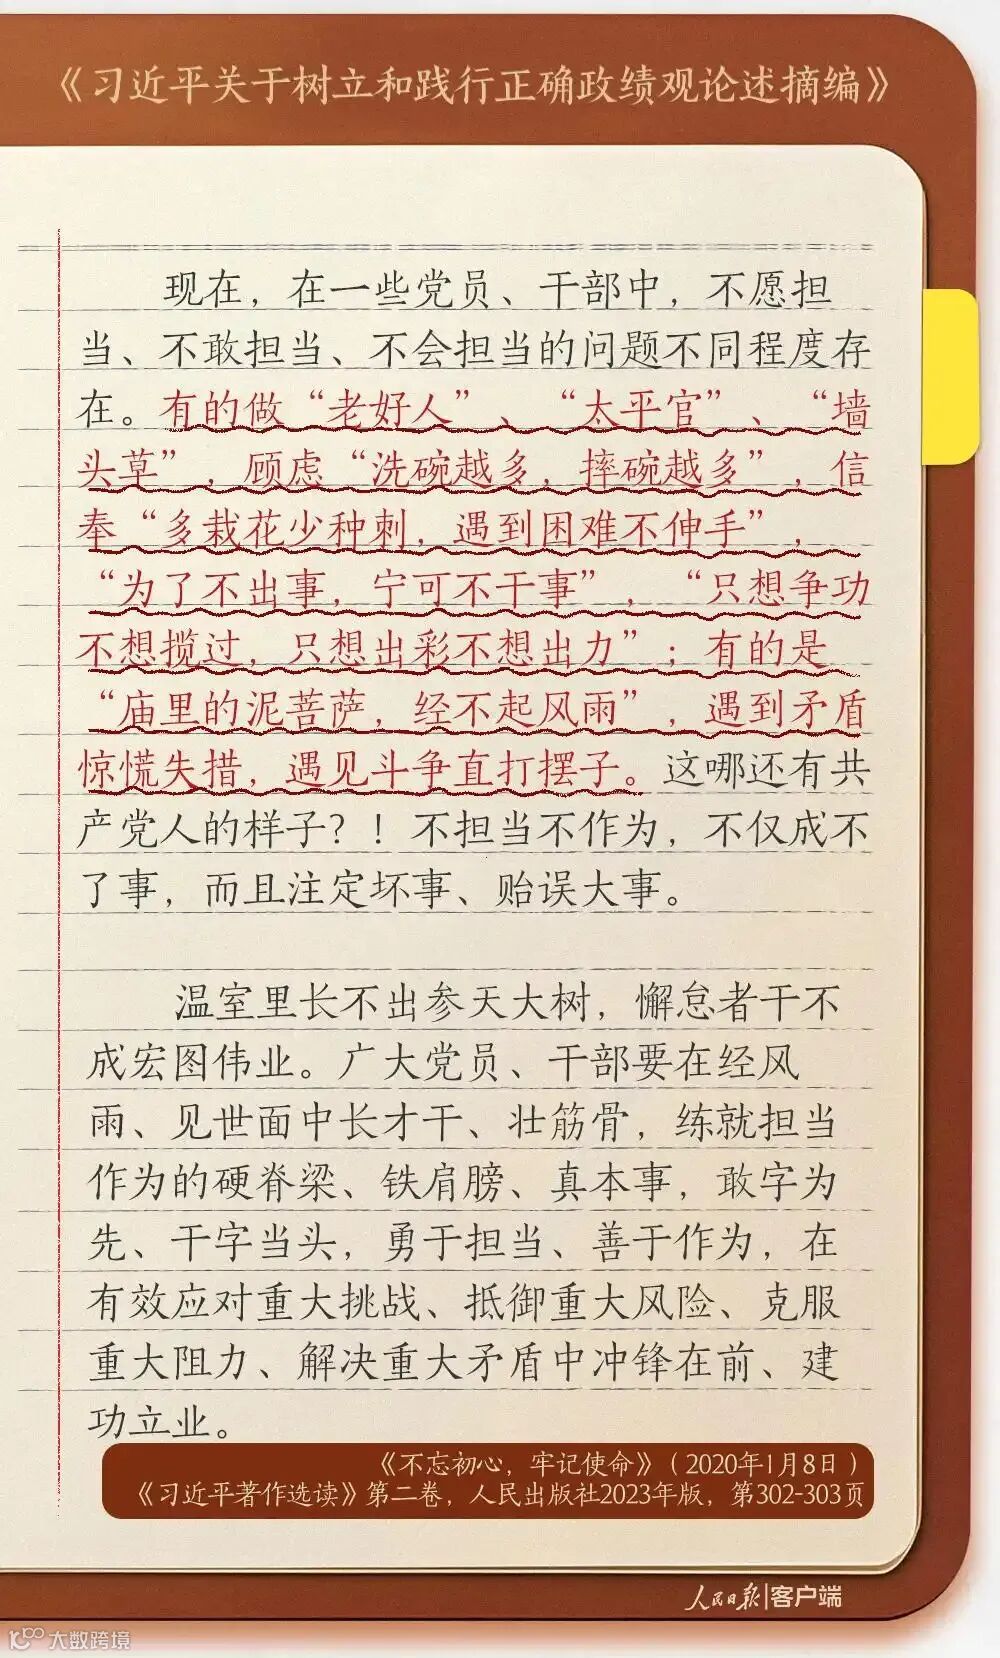 《习近平关于树立和践行正确政绩观论述摘编》
现在，在一些党员、干部中，不愿担
当、不敢担当、不会担当的问题不同程度存
在。有的做“老好人”、“太平官”、“墙
头草”，顾虑“洗碗越多，摔碗越多”，信
奉“多栽花少种刺，遇到困难不伸手”，
“为了不出事，宁可不干事”，“只想争功
不想揽过，只想出彩不想出力”；有的是
“庙里的泥菩萨，经不起风雨”，遇到矛盾
惊慌失措，遇见斗争直打摆子。这哪还有共
产党人的样子？！不担当不作为，不仅成不
了事，而且注定坏事、贻误大事。
温室里长不出参天大树，懈怠者干不
成宏图伟业。广大党员、干部要在经风
雨、见世面中长才干、壮筋骨，练就担当
作为的硬脊梁、铁肩膀、真本事，敢字为
先、干字当头，勇于担当、善于作为，在
有效应对重大挑战、抵御重大风险、克服
重大阻力、解决重大矛盾中冲锋在前、建
功立业。
《不忘初心，牢记使命》（2020年1月8日）
《习近平著作选读》第二卷，人民出版社2023年版，第302-303页
人民日报|客户端
大数跨境